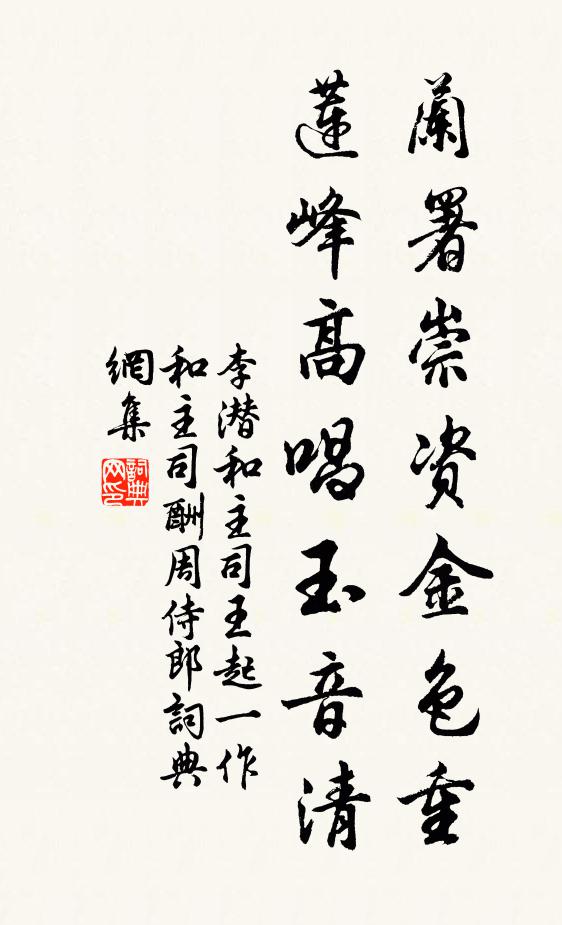 蘭署崇資金色重
蓮峰高唱玉音清
李潜和主司王起一作
和主司酬周侍郎詞典
網集
詞典
网印